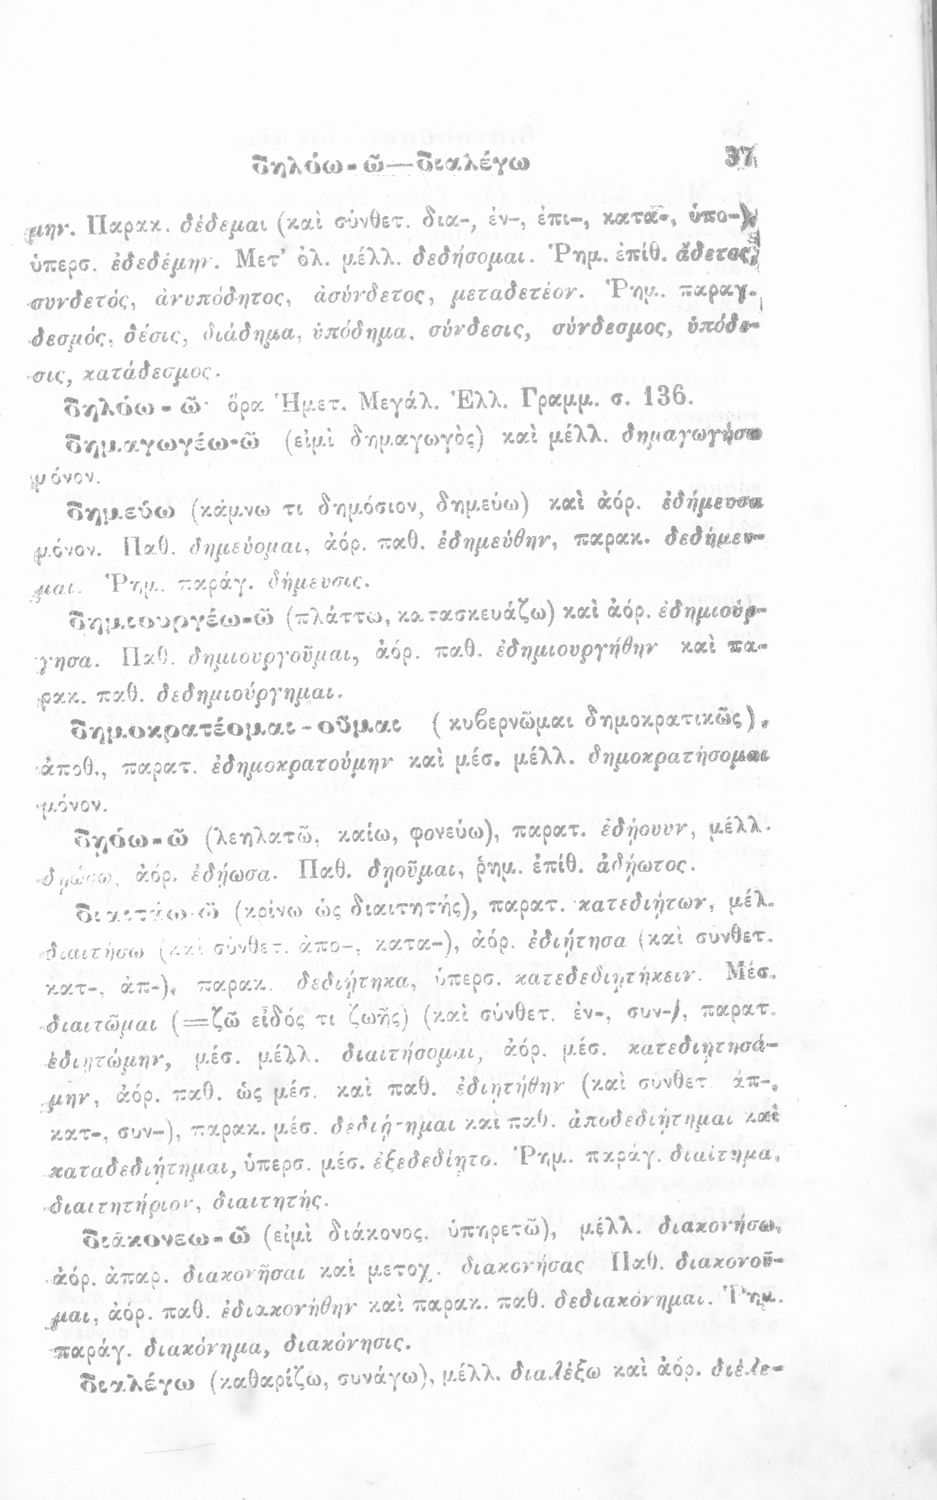 δηλόω-ῶ—διαλέγω 37
μην. Παρακ. δέδεμαι (καὶ σύνθετ. δια-, ἐν-, ἐπι-, κατα-, ὑπο-),
ὑπερσ. ἐδεδέμην. Μετ' ὀλ. μέλλ. δεδήσομαι. Ῥημ. ἐπίθ. ἄδετος,
συνδετός, ἀνυπόδητος, ἀσύνδετος, μεταδετέον. Ῥημ. παραγ.
δεσμός, δέσις, διάδημα, ὑπόδημα, σύνδεσις, σύνδεσμος, ὑπόδε-
σις, κατάδεσμος.
δηλόω-ῶ· ὅρα Ἡμετ. Μεγάλ. Ἑλλ. Γραμμ. σ. 136.
δημαγωγέω-ῶ (εἰμὶ δημαγωγὸς) καὶ μέλλ. δημαγωγήσω
μόνον.
δημεύω (κάμνω τι δημόσιον, δημεύω) καὶ ἀόρ. ἐδήμευσα
μόνον. Παθ. δημεύομαι, ἀόρ. παθ. ἐδημεύθην, παρακ. δεδήμευ-
μαι. Ῥημ. παράγ. δήμευσις.
δημιουργέω-ῶ (πλάττω, κατασκευάζω) καὶ ἀόρ. ἐδημιούρ-
γησα. Παθ. δημιουργοῦμαι, ἀόρ. παθ. ἐδημιουργήθην καὶ πα-
ρακ. παθ. δεδημιούργημαι.
δημοκρατέομαι-οῦμαι (κυβερνῶμαι δημοκρατικῶς),
ἀποθ., παρατ. ἐδημοκρατούμην καὶ μέσ. μέλλ. δημοκρατήσομαι
μόνον.
δῃόω-ῶ (λεηλατῶ, καίω, φονεύω), παρατ. ἐδῄουν, μέλλ.
δῃώσω, ἀόρ. ἐδῄωσα. Παθ. δῃοῦμαι, ῥημ. ἐπίθ. ἀδῄωτος.
διαιτάω-ῶ (κρίνω ὡς διαιτητής), παρατ. κατεδιῄτων, μέλ.
διαιτήσω (καὶ σύνθετ. ἀπο-, κατα-), ἀόρ. ἐδιῄτησα (καὶ σύνθετ.
κατ-, ἀπ-), παρακ. δεδιῄτηκα, ὑπερσ. κατεδεδιῃτήκειν. Μέσ.
διαιτῶμαι (=ζῶ εἶδός τι ζωῆς) (καὶ σύνθετ. ἐν-, συν-), παρατ.
ἐδιῃτώμην, μέσ. μέλλ. διαιτήσομαι, ἀόρ. μέσ. κατεδιῃτησά-
μην, ἀόρ. παθ. ὡς μέσ. καὶ παθ. ἐδιῃτήθην (καὶ σύνθετ. ἀπ-,
κατ-, συν-), παρακ. μέσ. δεδιῄτημαι καὶ παθ. ἀποδεδιῄτημαι καὶ
καταδεδιῄτημαι, ὑπερσ. μέσ. ἐξεδεδιῄτο. Ῥημ. παράγ. διαίτημα,
διαιτητήριον, διαιτητής.
διακονέω-ῶ (εἰμὶ διάκονος, ὑπηρετῶ), μέλλ. διακονήσω,
ἀόρ. ἀπαρ. διακονῆσαι καὶ μετοχ. διακονήσας Παθ. διακονοῦ-
μαι, ἀόρ. παθ. ἐδιακονήθην καὶ παρακ. παθ. δεδιακόνημαι. Ῥημ.
παράγ. διακόνημα, διακόνησις.
διαλέγω (καθαρίζω, συνάγω), μέλλ. διαλέξω καὶ ἀόρ. διέλε-